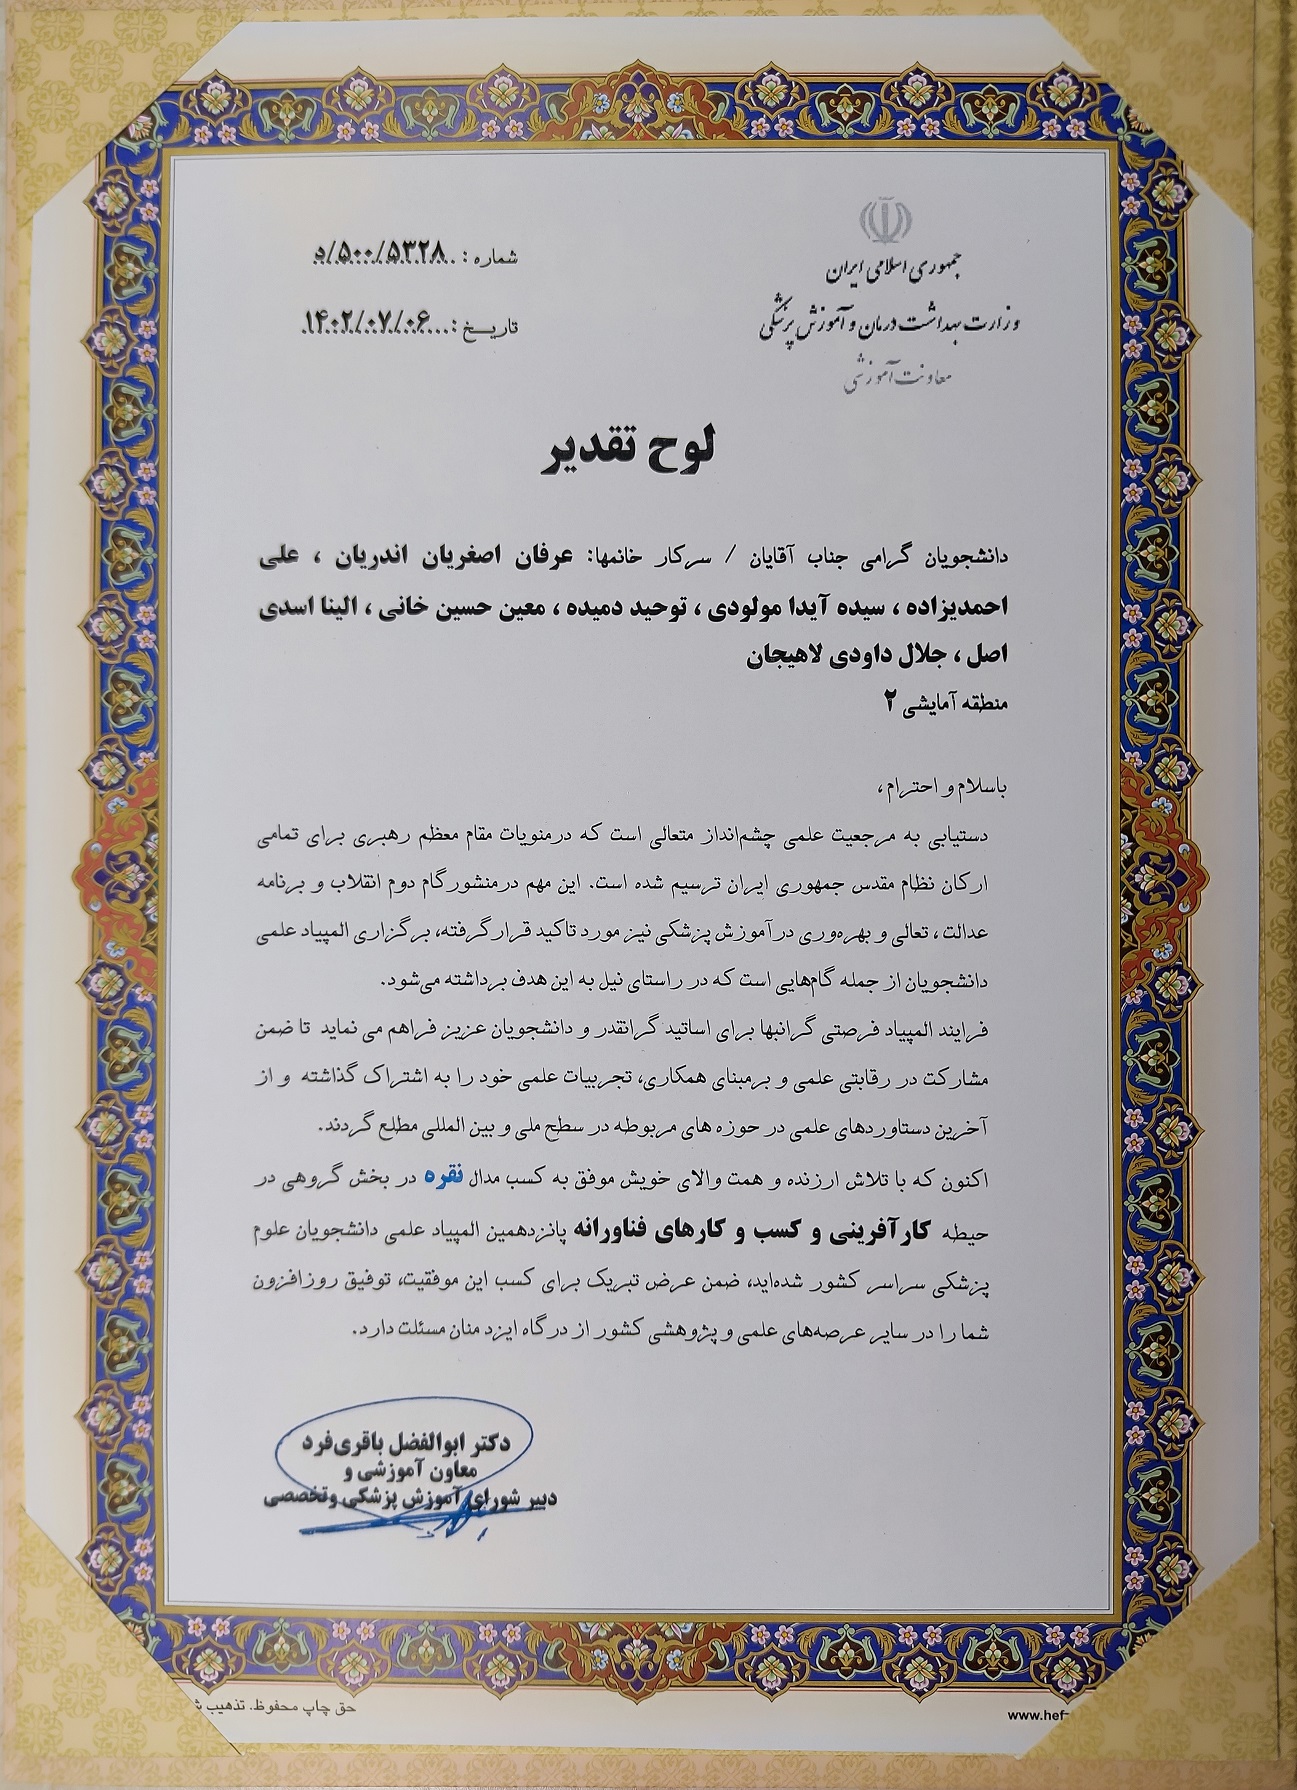 جمهوری اسلامی ایران
وزارت بهداشت درمان و آموزش پزشکی
معاونت آموزشی
شماره : ۵۰۰/۵۳۲۸/د
تاریخ : ۱۴۰۲/۰۷/۰۶
لوح تقدیر
دانشجویان گرامی جناب آقایان / سرکار خانمها: عرفان اصغریان اندریان ، علی
احمدیزاده ، سیده آیدا مولودی ، توحید دمیده ، معین حسین خانی ، الینا اسدی
اصل ، جلال داودی لاهیجان
منطقه آمایشی ۲
باسلام و احترام،
دستیابی به مرجعیت علمی چشم‌انداز متعالی است که درمنویات مقام معظم رهبری برای تمامی
ارکان نظام مقدس جمهوری ایران ترسیم شده است. این مهم درمنشورگام دوم انقلاب و برنامه
عدالت ، تعالی و بهره‌وری درآموزش پزشکی نیز مورد تاکید قرارگرفته، برگزاری المپیاد علمی
دانشجویان از جمله گام‌هایی است که در راستای نیل به این هدف برداشته می‌شود.
فرایند المپیاد فرصتی گرانبها برای اساتید گرانقدر و دانشجویان عزیز فراهم می نماید تا ضمن
مشارکت در رقابتی علمی و برمبنای همکاری، تجربیات علمی خود را به اشتراک گذاشته و از
آخرین دستاوردهای علمی در حوزه های مربوطه در سطح ملی و بین المللی مطلع گردند.
اکنون که با تلاش ارزنده و همت والای خویش موفق به کسب مدال نقره در بخش گروهی در
حیطه کارآفرینی و کسب و کارهای فناورانه پانزدهمین المپیاد علمی دانشجویان علوم
پزشکی سراسر کشور شده‌اید، ضمن عرض تبریک برای کسب این موفقیت، توفیق روزافزون
شما را در سایر عرصه‌های علمی و پژوهشی کشور از درگاه ایزد منان مسئلت دارد.
دکتر ابوالفضل باقری‌فرد
معاون آموزشی و
دبیر شورای آموزش پزشکی وتخصصی
حق چاپ محفوظ. تذهیب
www.hef-